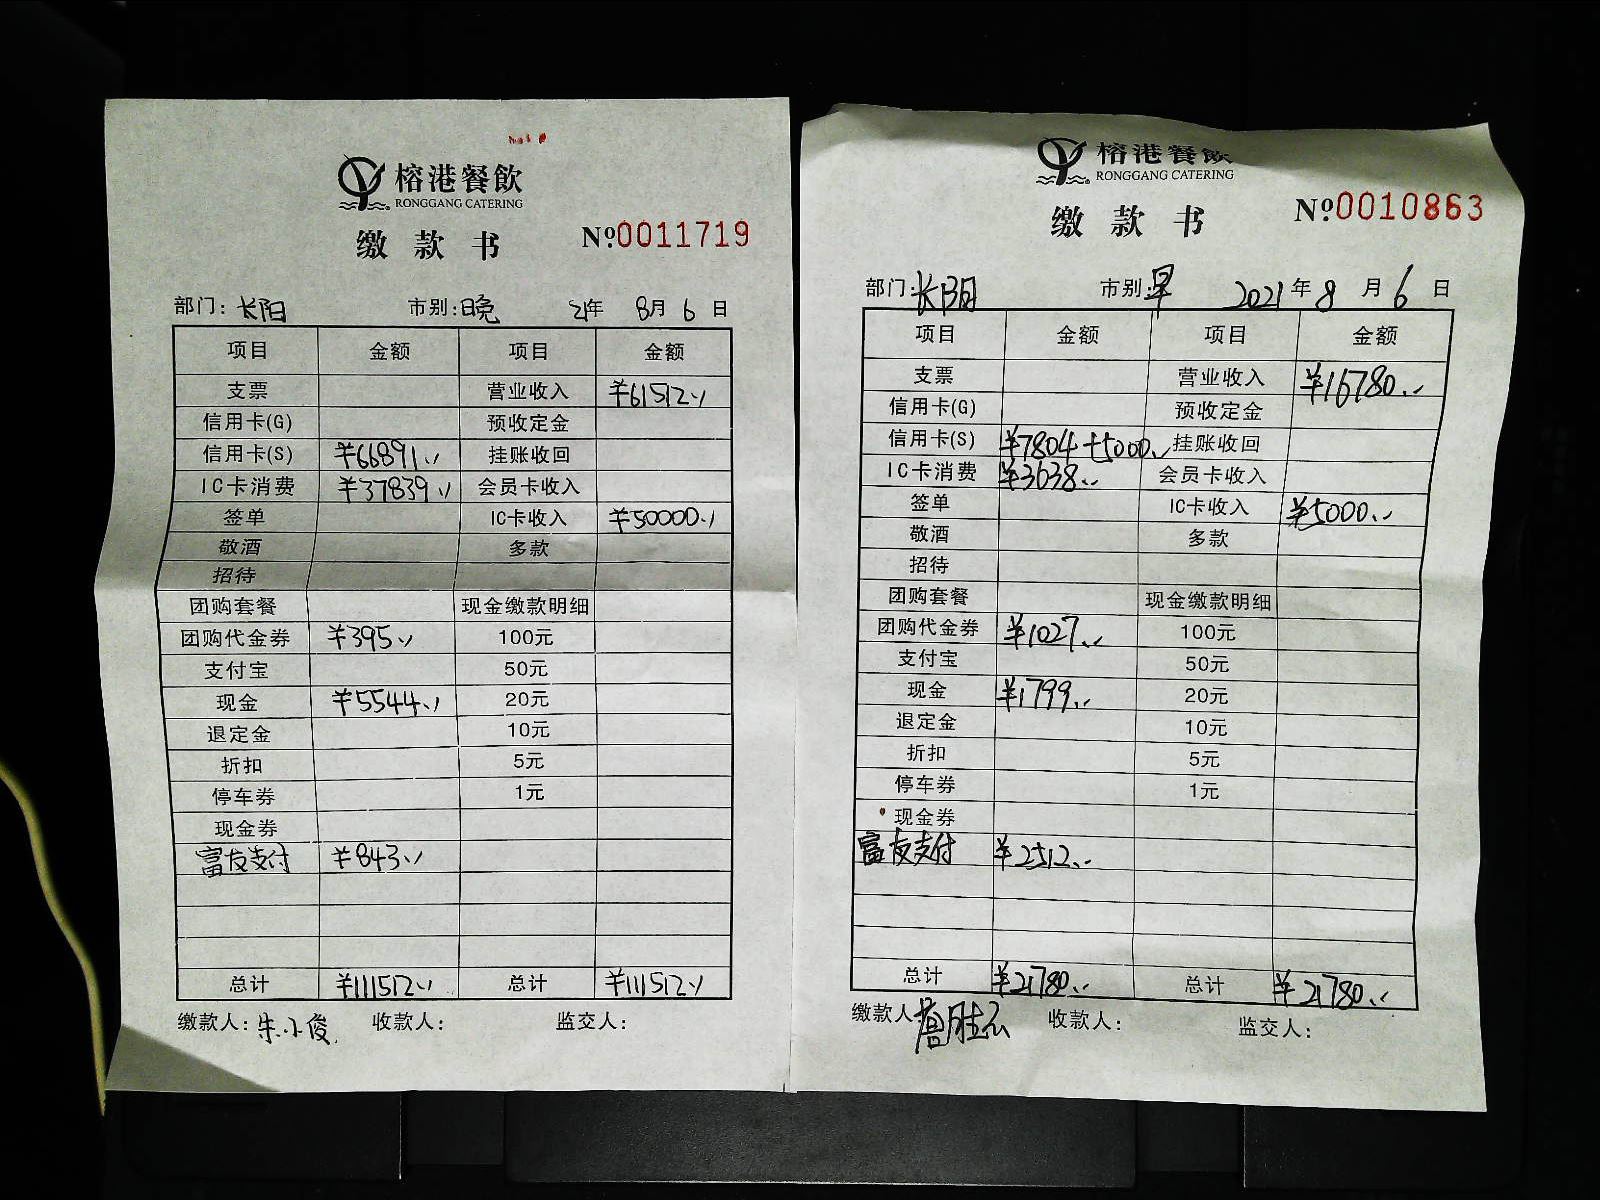 榕港餐飲
RONGGANG CATERING
缴款书 №0011719
部门：长阳 市别：晚 21年 8月 6日
项目 金额 项目 金额
支票 营业收入 ¥61512.
信用卡(G) 预收定金
信用卡(S) ¥66891. 挂账收回
IC卡消费 ¥37839. 会员卡收入
签单 IC卡收入 ¥50000.
敬酒 多款
招待
团购套餐 现金缴款明细
团购代金券 ¥395. 100元
支付宝 50元
现金 ¥5544. 20元
退定金 10元
折扣 5元
停车券 1元
现金券
富友支付 ¥843.
总计 ¥111512. 总计 ¥111512.
缴款人：朱小俊 收款人： 监交人：
榕港餐飲
RONGGANG CATERING
缴款书 №0010863
部门：长阳 市别：早 2021年 8月 6日
项目 金额 项目 金额
支票 营业收入 ¥16780.
信用卡(G) 预收定金
信用卡(S) ¥7804+5000. 挂账收回
IC卡消费 ¥3638. 会员卡收入
签单 IC卡收入 ¥5000.
敬酒 多款
招待
团购套餐 现金缴款明细
团购代金券 ¥1027. 100元
支付宝 50元
现金 ¥1799. 20元
退定金 10元
折扣 5元
停车券 1元
现金券
富友支付 ¥2512.
总计 ¥21780. 总计 ¥21780.
缴款人 收款人： 监交人：